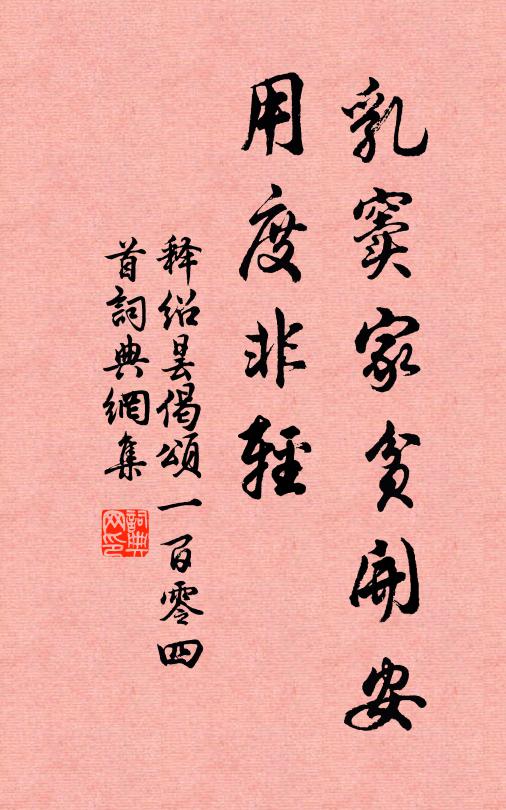 乳窦家贫開安
用度非輕
释绍昙偈頌一百零四
首詞典網集
詞典
网印